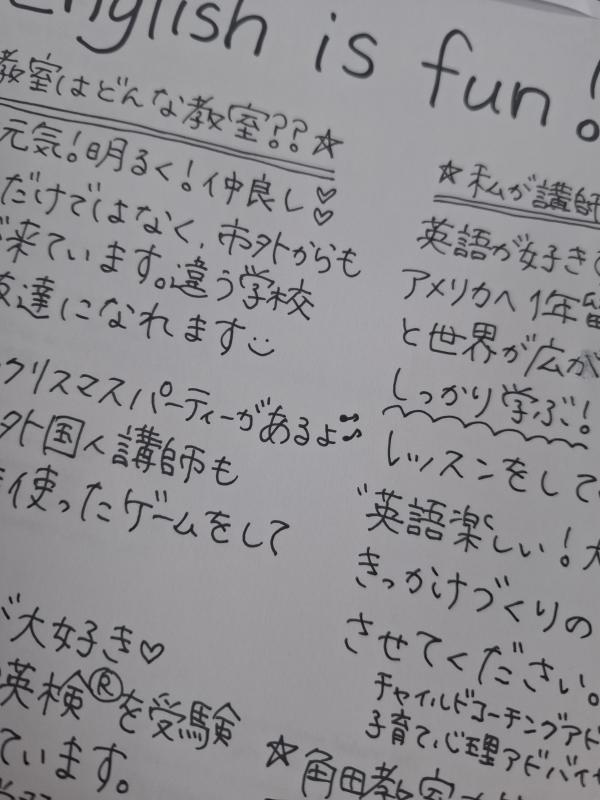 English is fun!
教室はどんな教室??☆
元気!明るく!仲良し♡♡
だけではなく、市外からも
来ています。違う学校
友達になれます
クリスマスパーティーがあるよ
外国人講師も
使ったゲームをして
大好き♡
英検®を受験
ています。
☆私が講師
英語が好きで
アメリカへ1年留
と世界が広が
しっかり学ぶ!
レッスンをして
"英語楽しい!
きっかけづくりの
させてください。
チャイルドコーチングアド
子育て心理アドバイ
☆角田教室